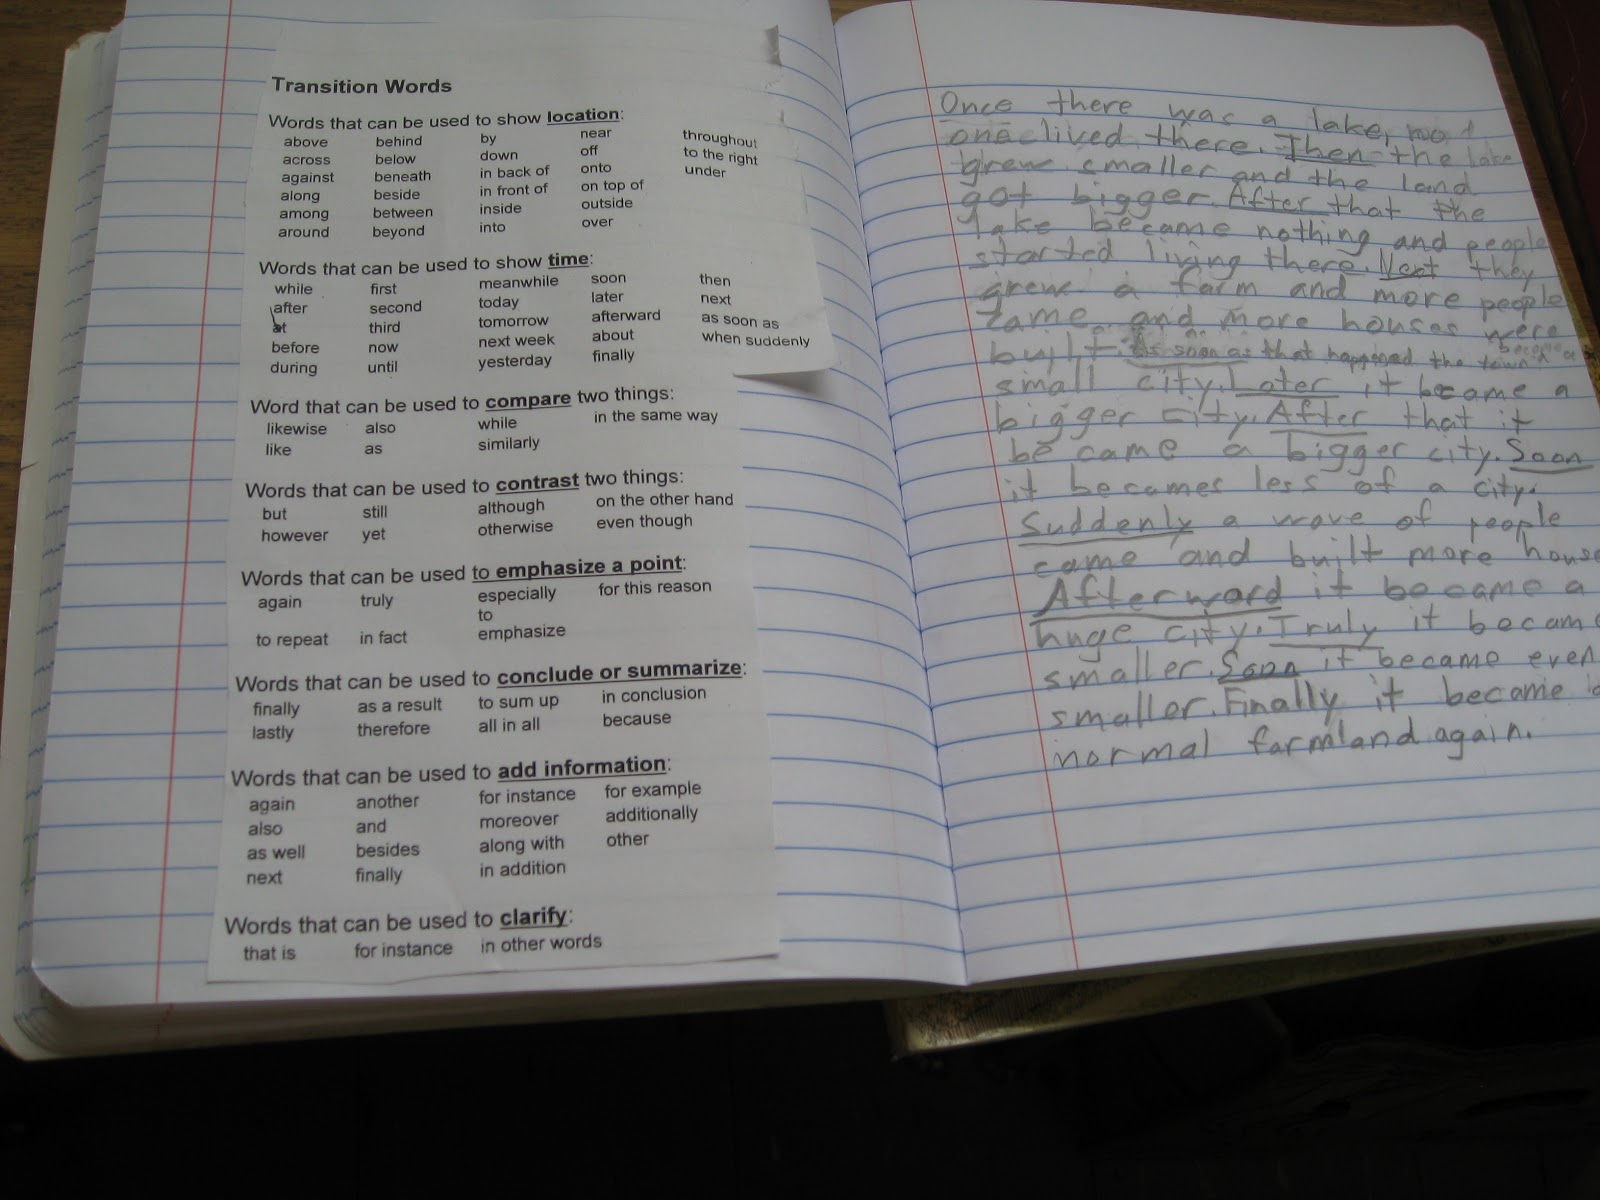 Transition Words
Words that can be used to show location:
above behind by near throughout
across below down off to the right
against beneath in back of onto under
along beside in front of on top of
among between inside outside
around beyond into over
Words that can be used to show time:
while first meanwhile soon then
after second today later next
at third tomorrow afterward as soon as
before now next week about when suddenly
during until yesterday finally
Word that can be used to compare two things:
likewise also while in the same way
like as similarly
Words that can be used to contrast two things:
but still although on the other hand
however yet otherwise even though
Words that can be used to emphasize a point:
again truly especially for this reason
to
to repeat in fact emphasize
Words that can be used to conclude or summarize:
finally as a result to sum up in conclusion
lastly therefore all in all because
Words that can be used to add information:
again another for instance for example
also and moreover additionally
as well besides along with other
next finally in addition
Words that can be used to clarify:
that is for instance in other words
Once there was a lake,
one lived there. Then the lake
grew smaller and the land
got bigger. After that the
lake became nothing and people
started living there. Next they
grew a farm and more people
came and more houses were
built. As soon as that happened the town became a
small city. Later it became a
bigger city. After that it
became a bigger city. Soon
it becames less of a city.
Suddenly a wave of people
came and built more house
Afterword it became a
huge city. Truly it becam
smaller. Soon it became even
smaller. Finally it became
normal farmland again.